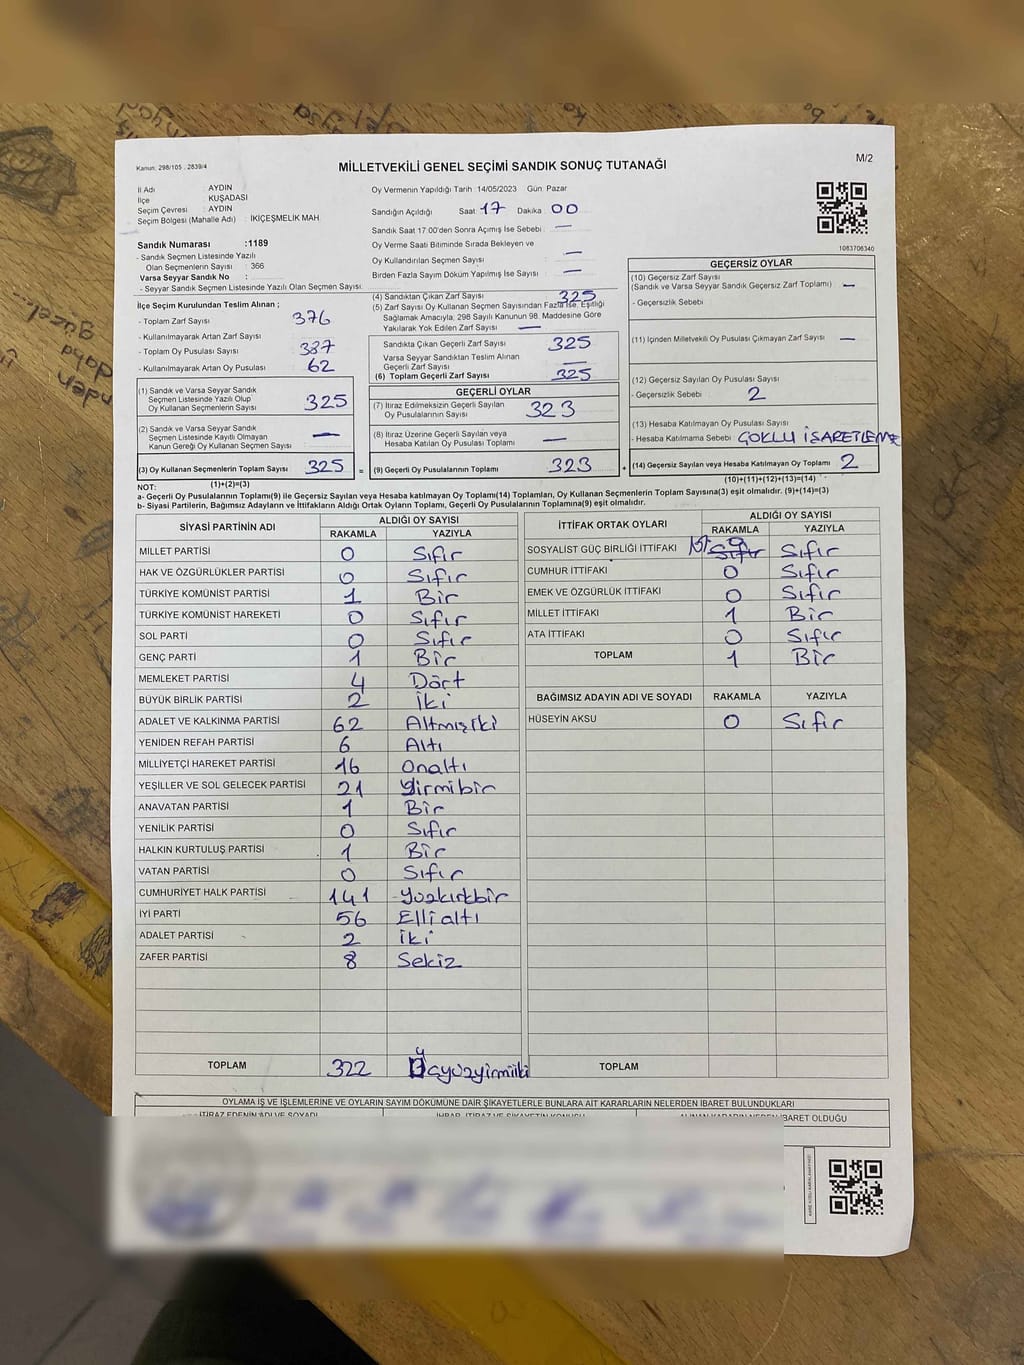 Kanun: 298/105 . 2839/4
MİLLETVEKİLİ GENEL SEÇİMİ SANDIK SONUÇ TUTANAĞI
M/2
İl Adı : AYDIN
İlçe : KUŞADASI
Seçim Çevresi : AYDIN
Seçim Bölgesi (Mahalle Adı) : İKİÇEŞMELİK MAH
Sandık Numarası :1189
- Sandık Seçmen Listesinde Yazılı
Olan Seçmenlerin Sayısı : 366
Varsa Seyyar Sandık No :
- Seyyar Sandık Seçmen Listesinde Yazılı Olan Seçmen Sayısı:
Oy Vermenin Yapıldığı Tarih : 14/05/2023 Gün: Pazar
Sandığın Açıldığı Saat 17 Dakika 00
Sandık Saat 17.00'den Sonra Açılmış İse Sebebi : —
Oy Verme Saati Bitiminde Sırada Bekleyen ve
Oy Kullandırılan Seçmen Sayısı : —
Birden Fazla Sayım Döküm Yapılmış İse Sayısı : —
1083706340
İlçe Seçim Kurulundan Teslim Alınan ;
- Toplam Zarf Sayısı : 376
- Kullanılmayarak Artan Zarf Sayısı :
- Toplam Oy Pusulası Sayısı : 387
- Kullanılmayarak Artan Oy Pusulası : 62
(1) Sandık ve Varsa Seyyar Sandık
Seçmen Listesinde Yazılı Olup
Oy Kullanan Seçmenlerin Sayısı : 325
(2) Sandık ve Varsa Seyyar Sandık
Seçmen Listesinde Kayıtlı Olmayan
Kanun Gereği Oy Kullanan Seçmen Sayısı : —
(3) Oy Kullanan Seçmenlerin Toplam Sayısı : 325
(1)+(2)=(3)
(4) Sandıktan Çıkan Zarf Sayısı : 325
(5) Zarf Sayısı Oy Kullanan Seçmen Sayısından Fazla İse, Eşitliği
Sağlamak Amacıyla, 298 Sayılı Kanunun 98. Maddesine Göre
Yakılarak Yok Edilen Zarf Sayısı : —
Sandıkta Çıkan Geçerli Zarf Sayısı : 325
Varsa Seyyar Sandıktan Teslim Alınan
Geçerli Zarf Sayısı : —
(6) Toplam Geçerli Zarf Sayısı : 325
GEÇERLİ OYLAR
(7) İtiraz Edilmeksizin Geçerli Sayılan
Oy Pusulalarının Sayısı : 323
(8) İtiraz Üzerine Geçerli Sayılan veya
Hesaba Katılan Oy Pusulaları Toplamı : —
= (9) Geçerli Oy Pusulalarının Toplamı : 323
GEÇERSİZ OYLAR
(10) Geçersiz Zarf Sayısı
(Sandık ve Varsa Seyyar Sandık Geçersiz Zarf Toplamı) : —
- Geçersizlik Sebebi :
(11) İçinden Milletvekili Oy Pusulası Çıkmayan Zarf Sayısı : —
(12) Geçersiz Sayılan Oy Pusulası Sayısı :
- Geçersizlik Sebebi : 2
(13) Hesaba Katılmayan Oy Pusulası Sayısı :
- Hesaba Katılmama Sebebi : ÇOKLU İŞARETLEME
+ (14) Geçersiz Sayılan veya Hesaba Katılmayan Oy Toplamı : 2
(10)+(11)+(12)+(13)=(14)
NOT:
a- Geçerli Oy Pusulalarının Toplamı(9) ile Geçersiz Sayılan veya Hesaba katılmayan Oy Toplamı(14) Toplamları, Oy Kullanan Seçmenlerin Toplam Sayısına(3) eşit olmalıdır. (9)+(14)=(3)
b- Siyasi Partilerin, Bağımsız Adayların ve İttifakların Aldığı Ortak Oyların Toplamı, Geçerli Oy Pusulalarının Toplamına(9) eşit olmalıdır.
SİYASİ PARTİNİN ADI ALDIĞI OY SAYISI
RAKAMLA YAZIYLA
MİLLET PARTİSİ 0 Sıfır
HAK VE ÖZGÜRLÜKLER PARTİSİ 0 Sıfır
TÜRKİYE KOMÜNİST PARTİSİ 1 Bir
TÜRKİYE KOMÜNİST HAREKETİ 0 Sıfır
SOL PARTİ 0 Sıfır
GENÇ PARTİ 1 Bir
MEMLEKET PARTİSİ 4 Dört
BÜYÜK BİRLİK PARTİSİ 2 İki
ADALET VE KALKINMA PARTİSİ 62 Altmışiki
YENİDEN REFAH PARTİSİ 6 Altı
MİLLİYETÇİ HAREKET PARTİSİ 16 Onaltı
YEŞİLLER VE SOL GELECEK PARTİSİ 21 Yirmibir
ANAVATAN PARTİSİ 1 Bir
YENİLİK PARTİSİ 0 Sıfır
HALKIN KURTULUŞ PARTİSİ 1 Bir
VATAN PARTİSİ 0 Sıfır
CUMHURİYET HALK PARTİSİ 141 Yüzkırkbir
İYİ PARTİ 56 Elli altı
ADALET PARTİSİ 2 İki
ZAFER PARTİSİ 8 Sekiz
TOPLAM 322 Üçyüzyirmiiki
İTTİFAK ORTAK OYLARI ALDIĞI OY SAYISI
RAKAMLA YAZIYLA
SOSYALİST GÜÇ BİRLİĞİ İTTİFAKI 0 Sıfır Sıfır
CUMHUR İTTİFAKI 0 Sıfır
EMEK VE ÖZGÜRLÜK İTTİFAKI 0 Sıfır
MİLLET İTTİFAKI 1 Bir
ATA İTTİFAKI 0 Sıfır
TOPLAM 1 Bir
BAĞIMSIZ ADAYIN ADI VE SOYADI RAKAMLA YAZIYLA
HÜSEYİN AKSU 0 Sıfır
TOPLAM
OYLAMA İŞ VE İŞLEMLERİNE VE OYLARIN SAYIM DÖKÜMÜNE DAİR ŞİKAYETLERLE BUNLARA AİT KARARLARIN NELERDEN İBARET BULUNDUKLARI
İTİRAZ EDENİN ADI VE SOYADI İHBAR, İTİRAZ VE ŞİKAYETİN KONUSU ALINAN KARARIN NEDEN İBARET OLDUĞU